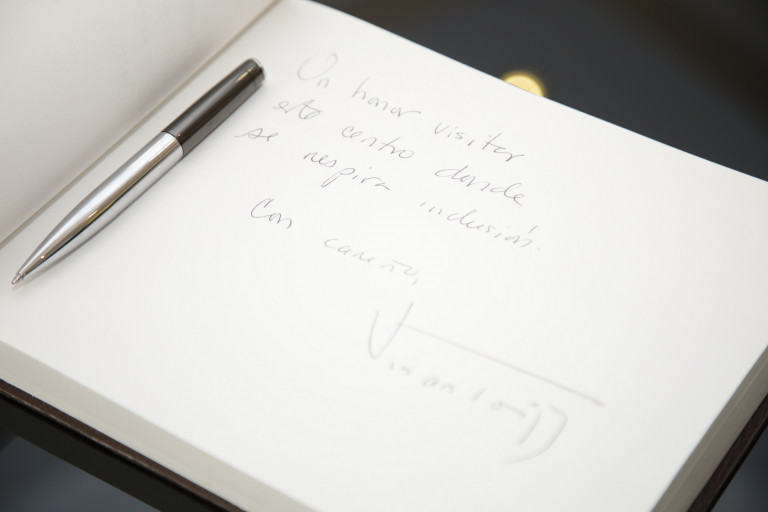 Un honor visitar
este centro donde
se respira inclusión.
Con cariño,